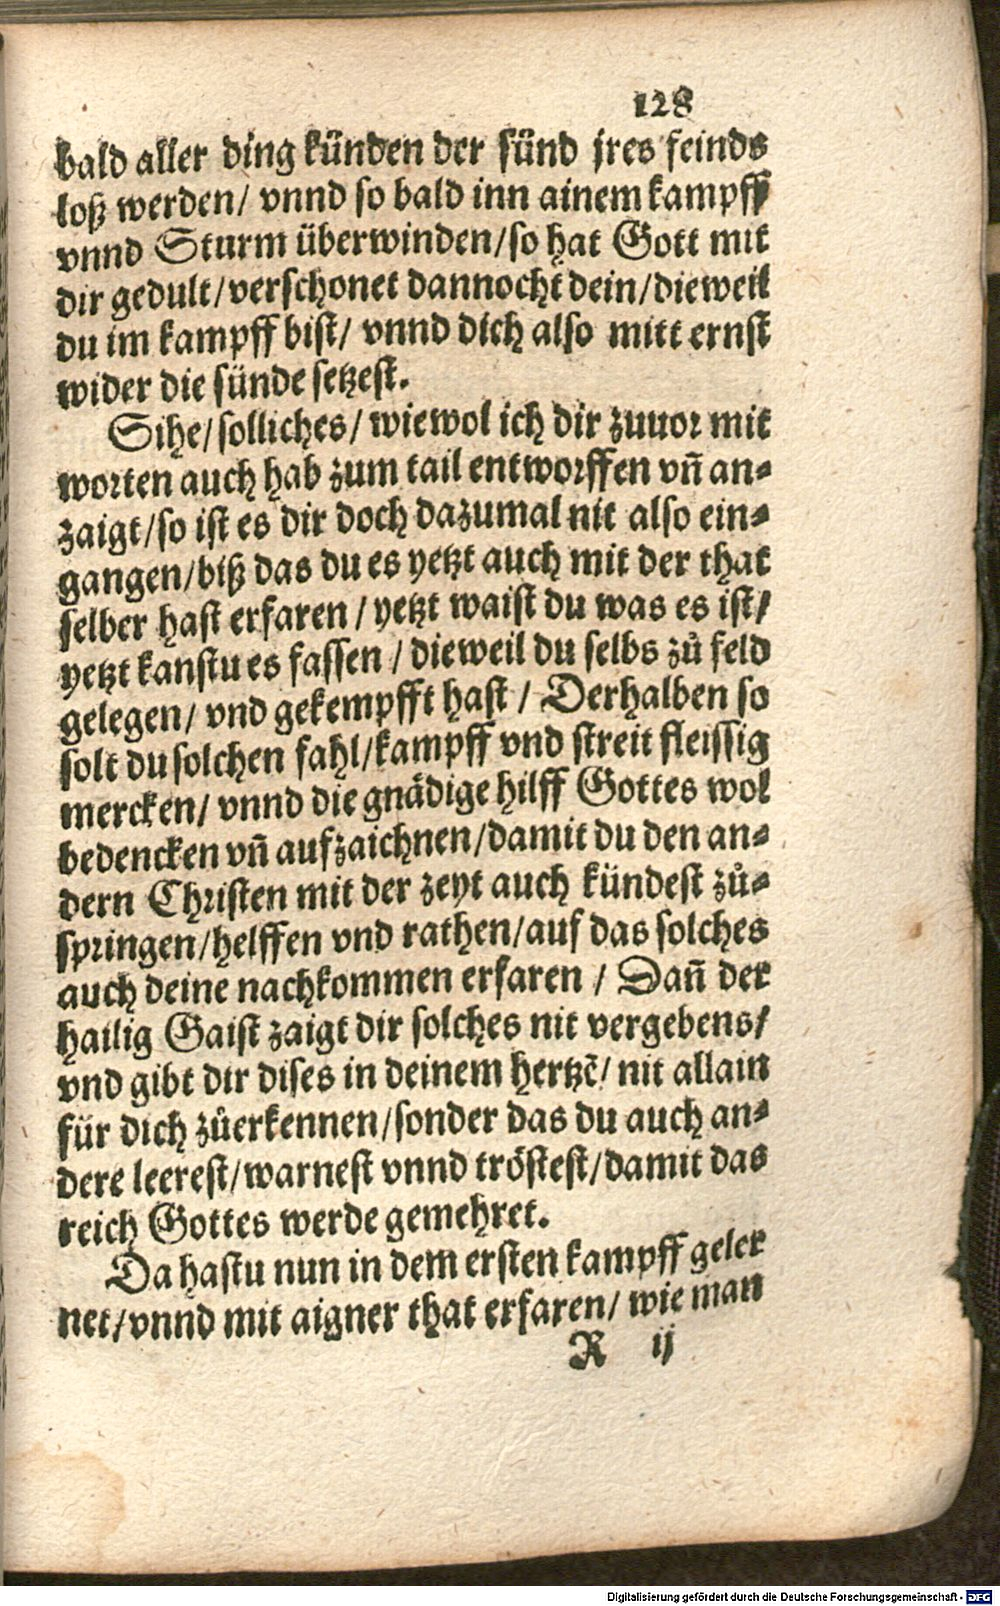 128
bald aller ding künden der sünd jres feinds
loß werden/ vnnd so bald inn ainem kampff
vnnd Sturm überwinden/so hat Gott mit
dir gedult/verschonet dannocht dein/dieweil
du im kampff bist/ vnnd dich also mitt ernst
wider die sünde setzest.
Sihe/solliches/ wiewol ich dir zuuor mit
worten auch hab zum tail entworffen vñ an-
zaigt/so ist es dir doch dazumal nit also ein-
gangen/biß das du es yetzt auch mit der that
selber hast erfaren / yetzt waist du was es ist/
yetzt kanstu es fassen / dieweil du selbs zů feld
gelegen/ vnd gekempfft hast / Derhalben so
solt du solchen fahl/kampff vnd streit fleissig
mercken/ vnnd die gnädige hilff Gottes wol
bedencken vñ aufzaichnen/damit du den an-
dern Christen mit der zeyt auch kündest zů-
springen/helffen vnd rathen/auf das solches
auch deine nachkommen erfaren / Dañ der
hailig Gaist zaigt dir solches nit vergebens/
vnd gibt dir dises in deinem hertzẽ/ nit allain
für dich zůerkennen/sonder das du auch an-
dere leerest/warnest vnnd tröstest/damit das
reich Gottes werde gemehret.
Da hastu nun in dem ersten kampff geler
net/vnnd mit aigner that erfaren/ wie man
R ij
Digitalisierung gefördert durch die Deutsche Forschungsgemeinschaft - DFG